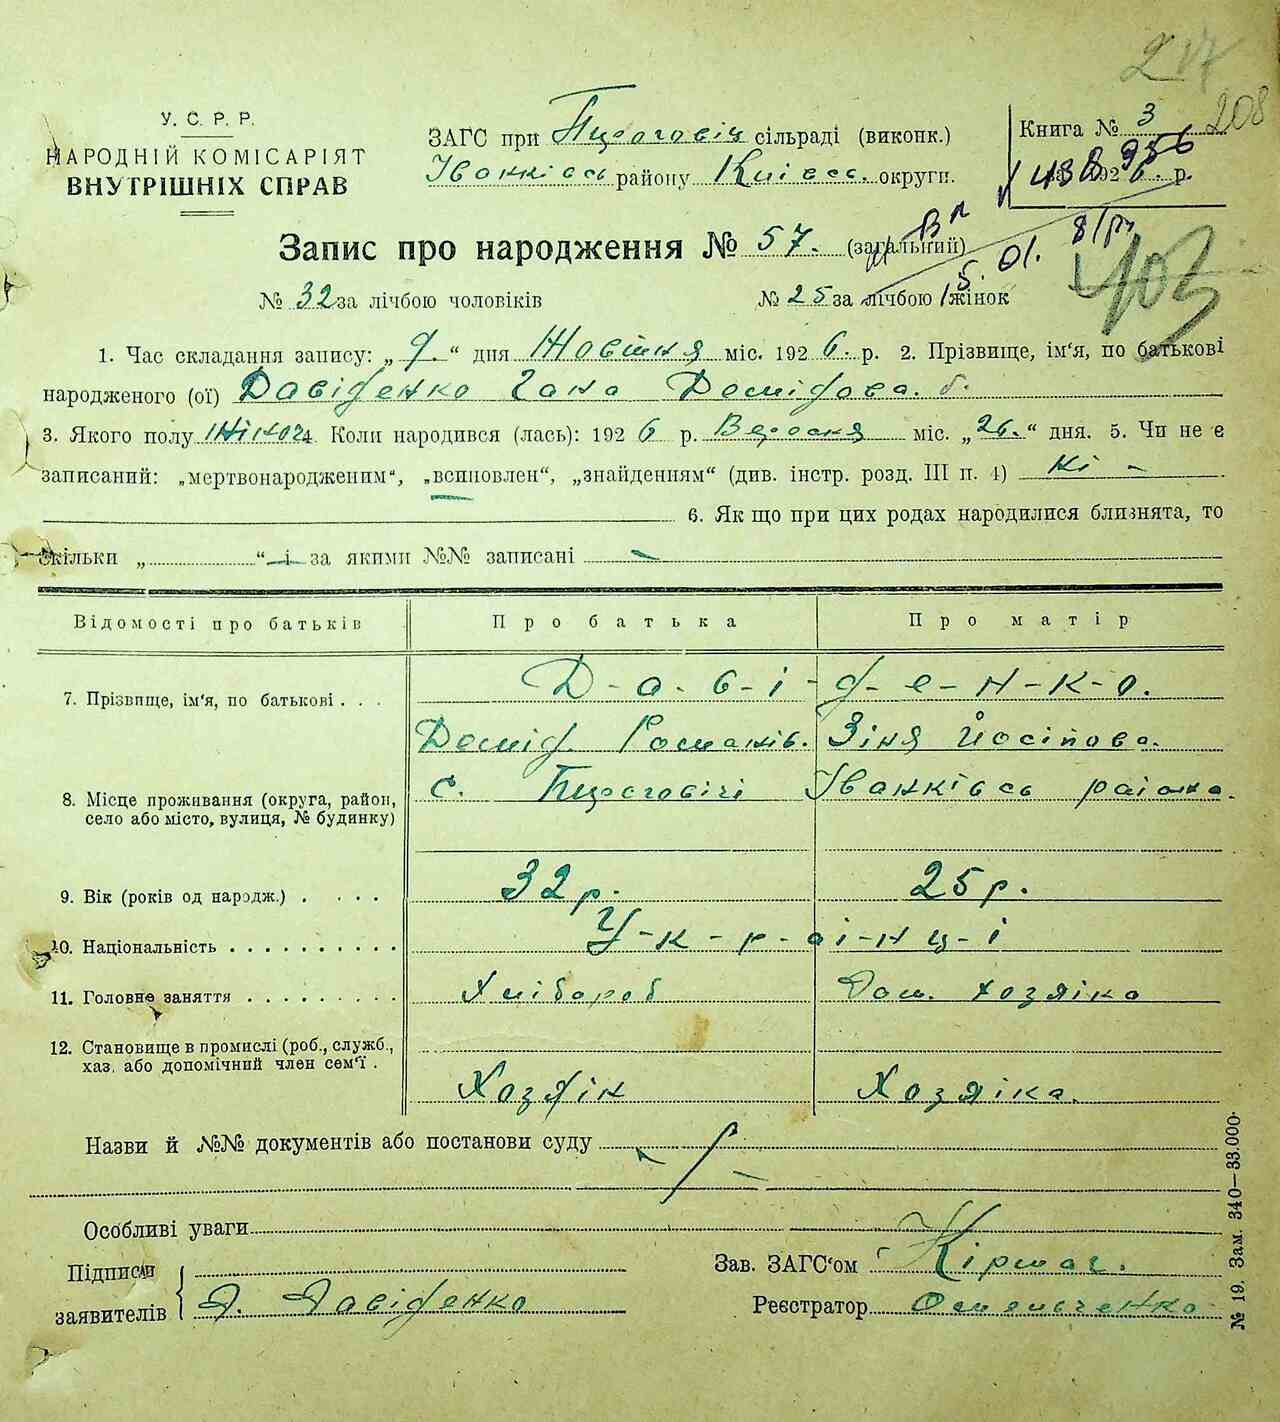 217
208
У. С. Р. Р.
НАРОДНІЙ КОМІСАРІЯТ
ВНУТРІШНІХ СПРАВ
ЗАГС при сільраді (виконк.)
Іванківсь району Київсь. округи.
Книга № 3
192 6. р.
Запис про народження № 57. (загальний)
403
№ 32 за лічбою чоловіків № 25 за лічбою жінок
1. Час складання запису: „ 9. “ дня Жовтня міс. 192 6. р. 2. Прізвище, ім‘я, по батькові
народженого (ої) Давіденко Гана Демідова.
3. Якого полу Жіночa. Коли народився (лась): 192 6 р. Вересня міс. „26.“ дня. 5. Чи не є
записаний: „мертвонародженим“, „всиновлен“, „знайденням“ (див. інстр. розд. III п. 4) Ні -
6. Як що при цих родах народилися близнята, то
скільки „ “ і за якими №№ записані -
Відомості про батьків Про батька Про матір
7. Прізвище, ім‘я, по батькові . . . Д-а-в-і-д-е-н-к-о.
Демід. Романів. Зіня Йосіпова.
8. Місце проживання (округа, район, село або місто, вулиця, № будинку) с. Іванківсь района.
9. Вік (років од народж.) . . . . 32 р. 25 р.
10. Національність . . . . . . . . . . У-к-р-аі-н-ц-і
11. Головне заняття . . . . . . . . . Хлібороб Дом. хозяіка
12. Становище в промислі (роб., служб., хаз. або допомічний член сем‘ї . Хозяін Хозяіка.
Назви й №№ документів або постанови суду
Особливі уваги
Підписи
заявителів Д. Давіденко
Зав. ЗАГС‘ом
Реєстратор
№ 19. Зам. 340—33.000.